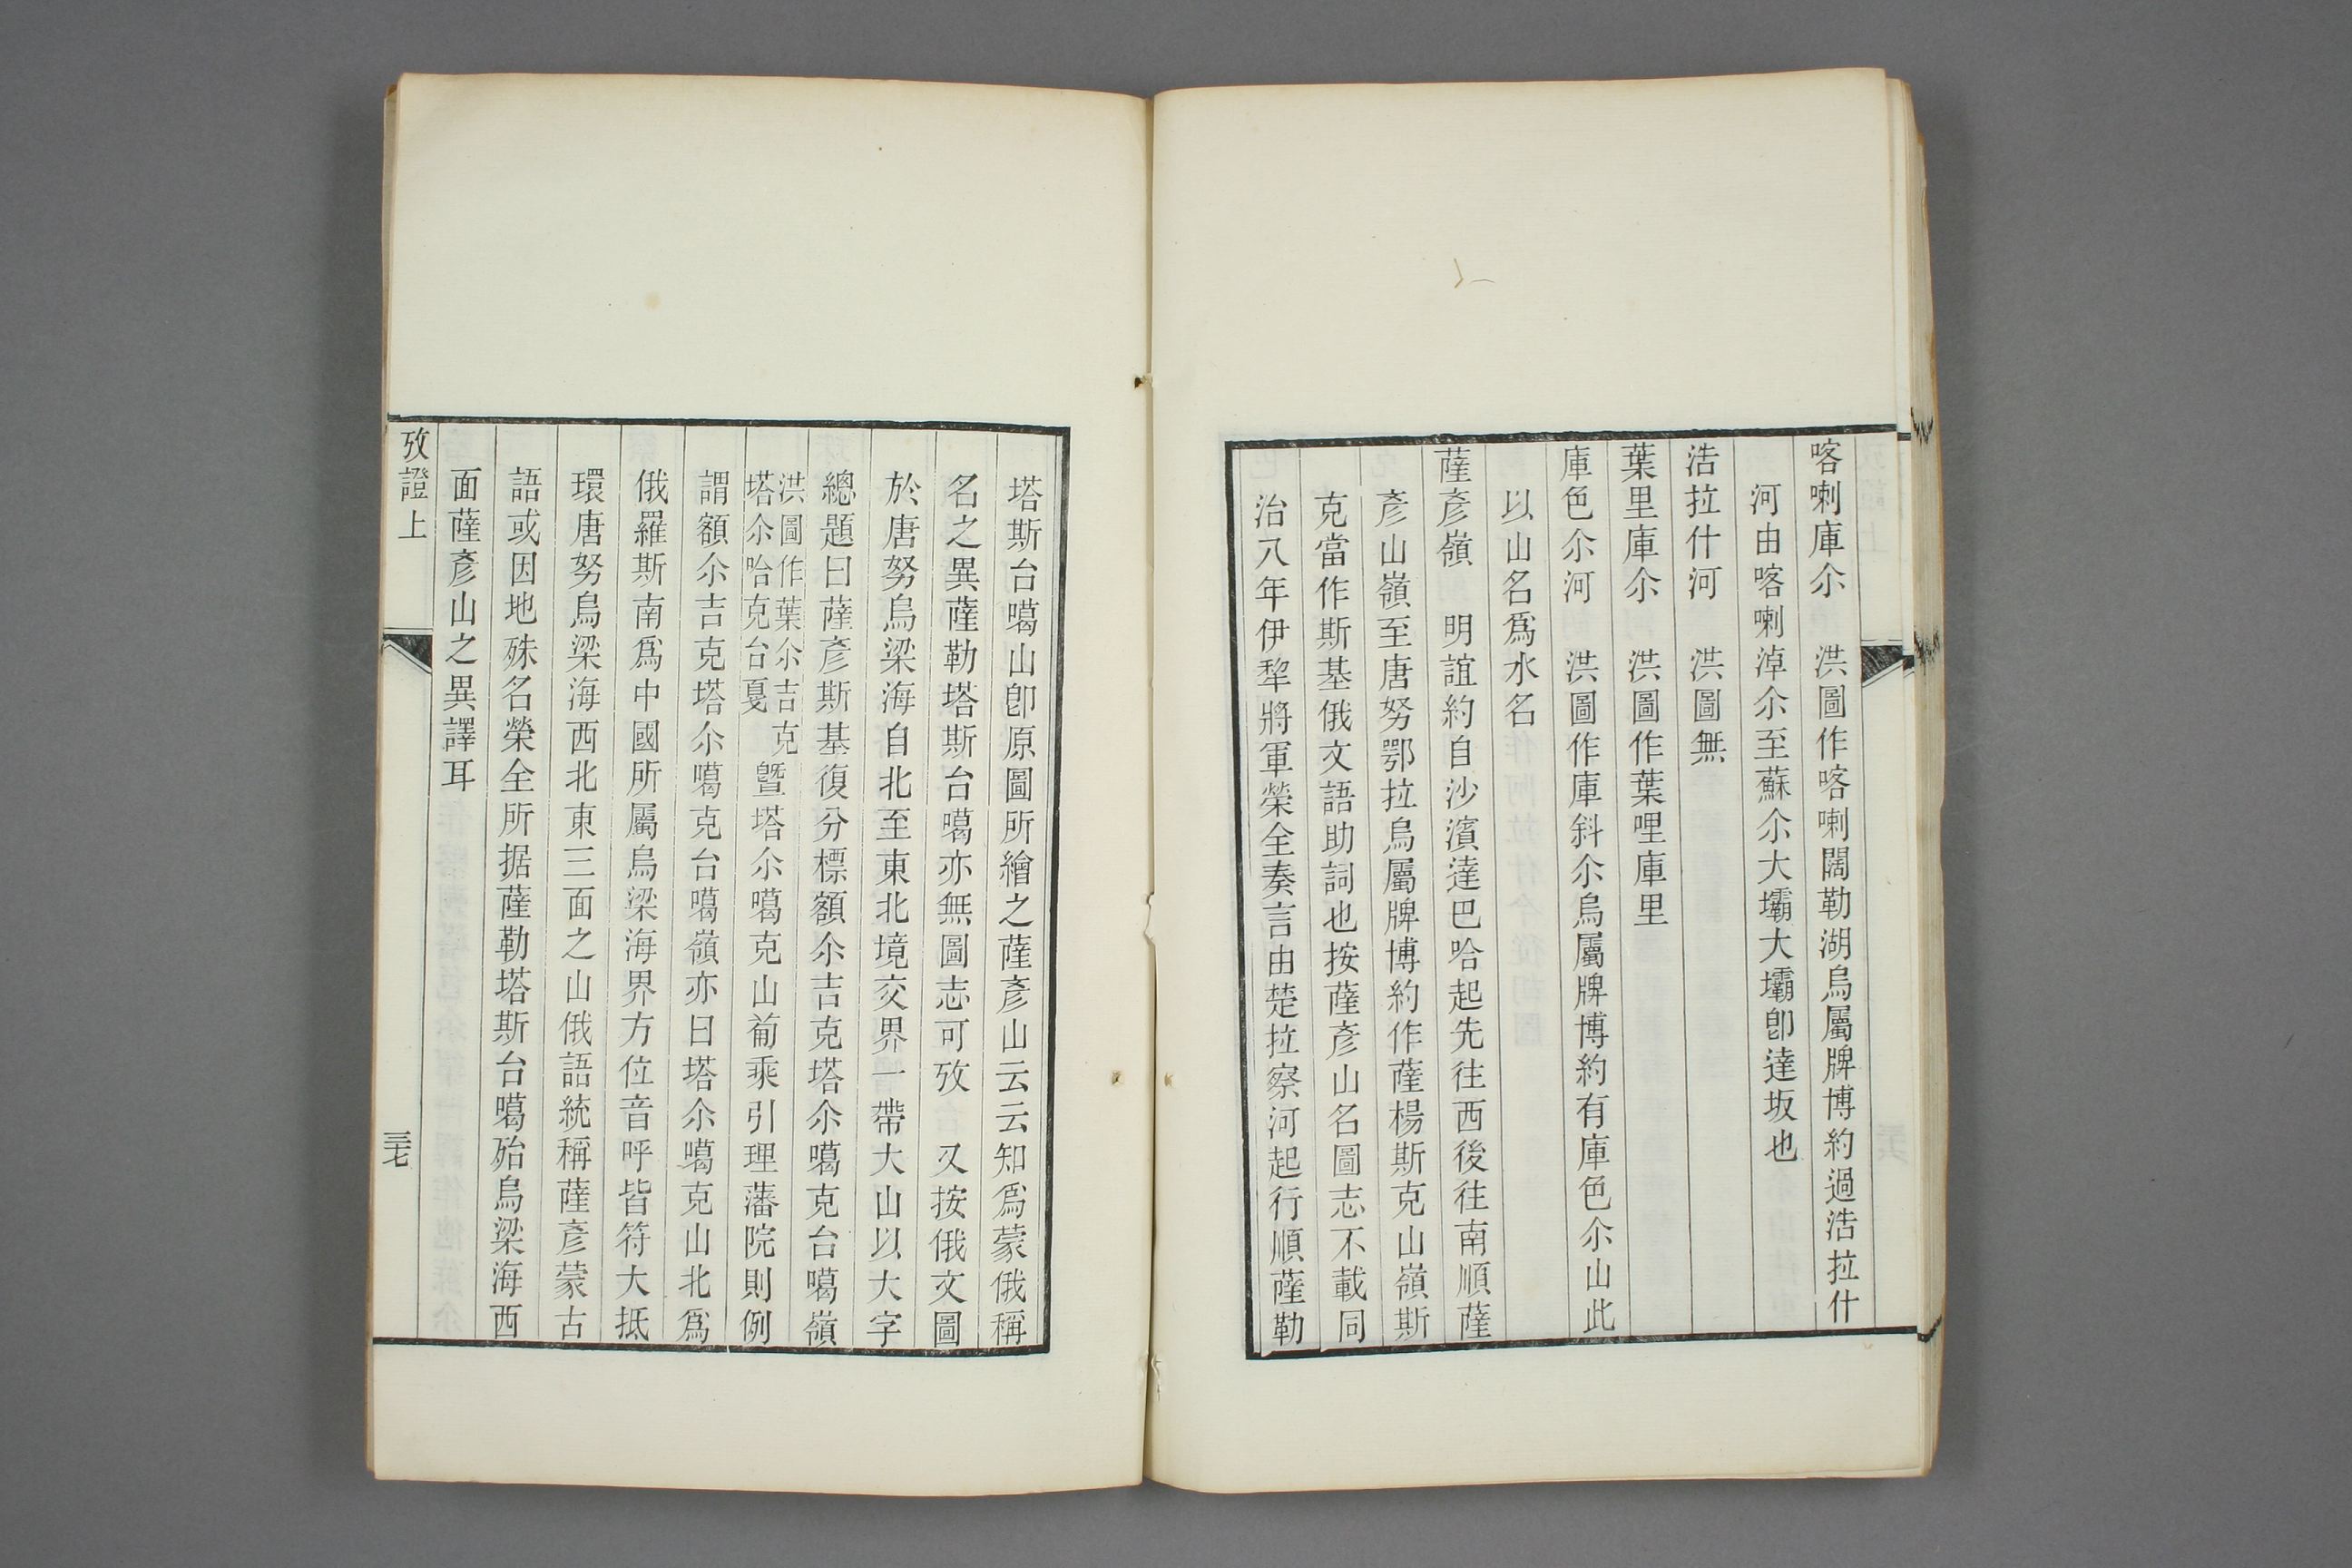 喀喇庫尒　洪圖作喀喇闊勒湖烏屬牌博約過浩拉什
河由喀喇淖尒至蘇尒大壩大壩卽達坂也
浩拉什河　洪圖無
葉里庫尒　洪圖作葉哩庫里
庫色尒河　洪圖作庫斜尒烏屬牌博約有庫色尒山此
以山名爲水名
薩彥嶺　明誼約自沙濱達巴哈起先往西後往南順薩
彥山嶺至唐努鄂拉烏屬牌博約作薩楊斯克山嶺斯
克當作斯基俄文語助詞也按薩彥山名圖志不載同
治八年伊犂將軍榮全奏言由楚拉察河起行順薩勒
塔斯台噶山卽原圖所繪之薩彥山云云知爲蒙俄稱
名之異薩勒塔斯台噶亦無圖志可攷　又按俄文圖
於唐努烏梁海自北至東北境交界一帶大山以大字
總題曰薩彥斯基復分標額尒吉克塔尒噶克台噶嶺
洪圖作葉尒吉克
塔尒哈克台戛
曁塔尒噶克山葡乘引理藩院則例
謂額尒吉克塔尒噶克台噶嶺亦曰塔尒噶克山北爲
俄羅斯南爲中國所屬烏梁海界方位音呼皆符大抵
環唐努烏梁海西北東三面之山俄語統稱薩彥蒙古
語或因地殊名榮全所据薩勒塔斯台噶殆烏梁海西
面薩彥山之異譯耳
攷證上
三七